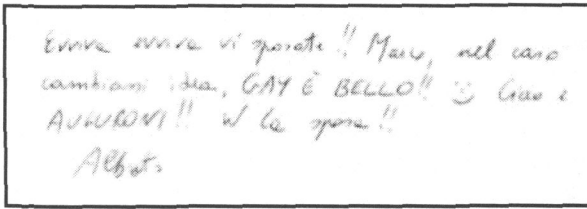 Evviva evviva vi sposate!! Marco, nel caso
cambiassi idea, GAY È BELLO!! Ciao e
AUGURONI!! W la sposa!!
Alberto